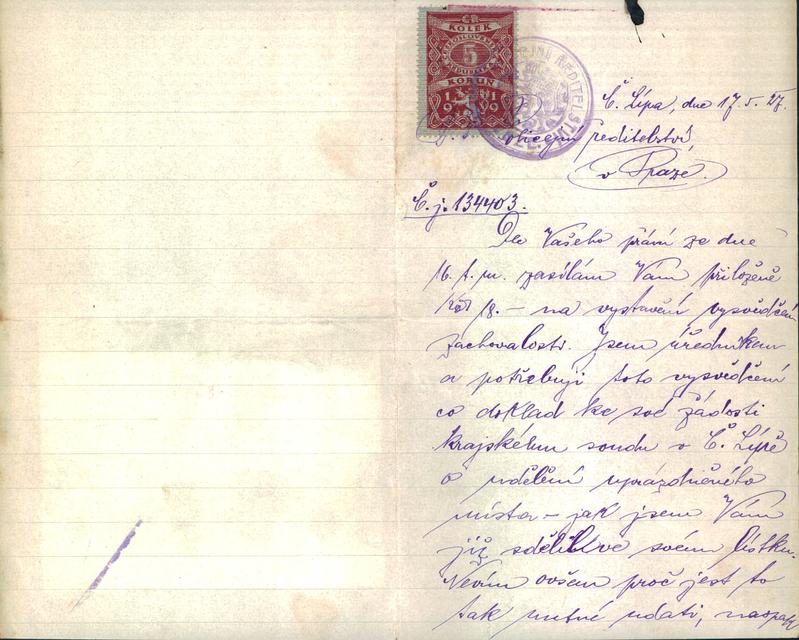 ČR
KOLEK
5
KORUN
1919
Č. Lípa, dne 17.5.27.
policejní ředitelství,
v Praze.
Č. j. 134403.
Dle Vašeho přání ze dne
16. t. m. zasílám Vám přiložené
18.– na vystavení vysvědčení
zachovalosti. Jsem úředníkem
a potřebuji toto vysvědčení
co doklad ke své žádosti
krajskému soudu v Č. Lípě
o udělení uprázdněného
místa – jak jsem Vám
již sdělil ve svém lístku.
Nevím ovšem proč jest to
tak nutné udati, naopak